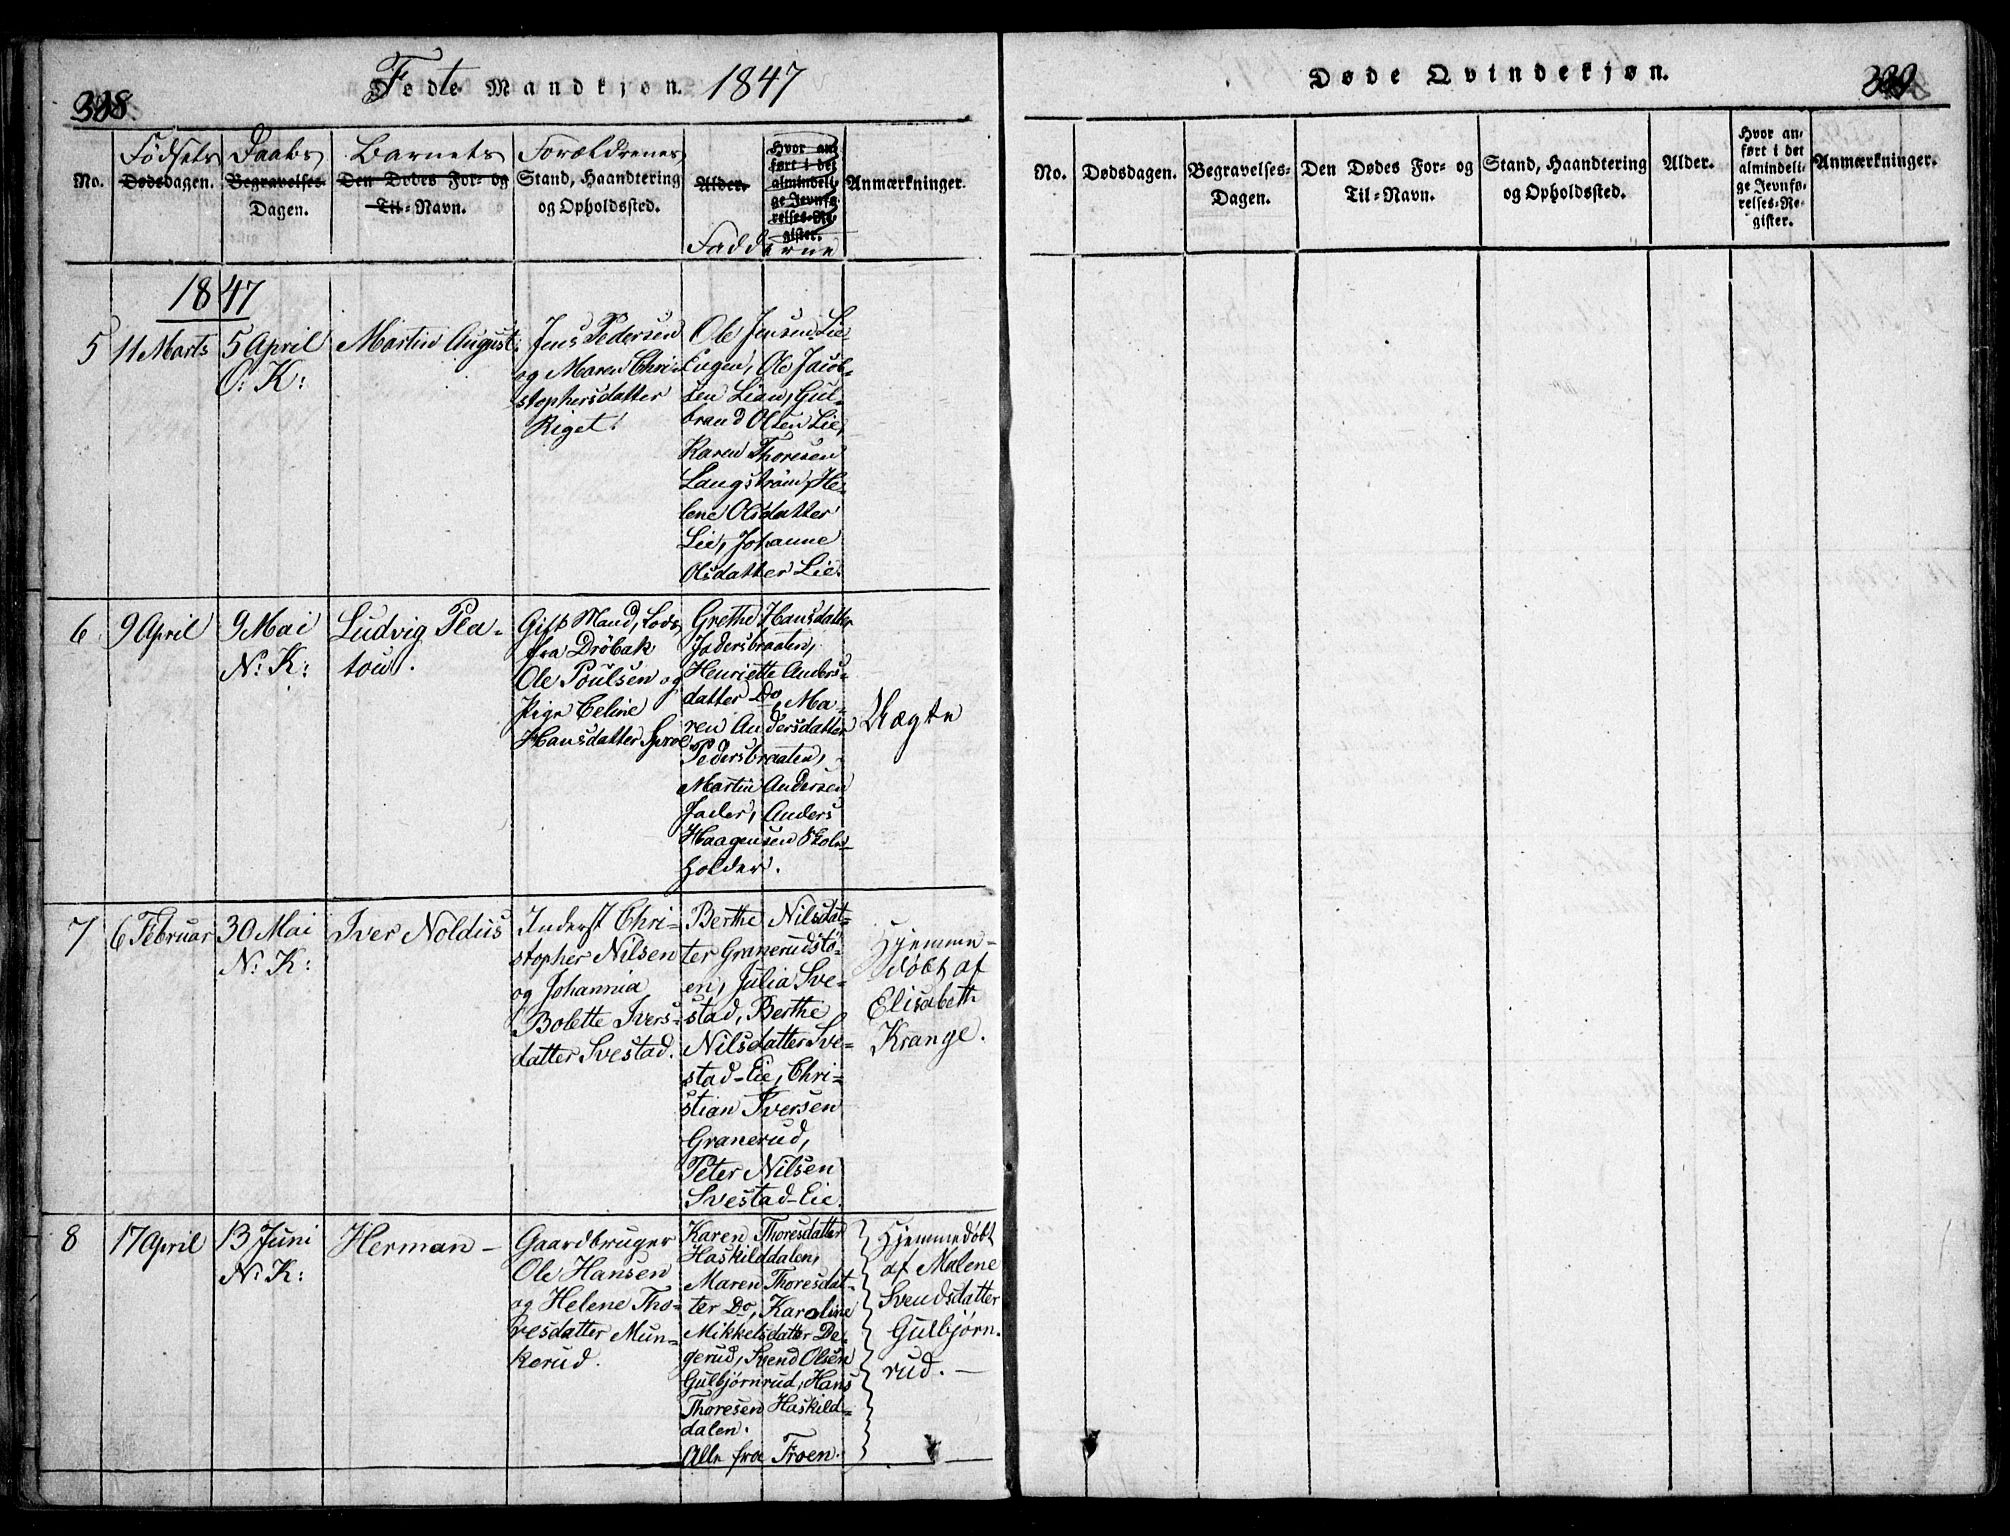 Fødte Mandkjøn. 1847
338.
No.
Fødsels
Dødsdagen.
Daabs
Begravelses
Dagen.
Barnets
Den Dødes For- og
Til-Navn.
Forældrenes
Stand, Haandtering
og Opholdssted.
Alder.
Hvor an-
ført i det
almindeli-
ge Jevnfø-
relses-Re-
gister.
Fadderne
Anmærkninger.
1847
5
11 Marts
5 April
O: K:
Martin August:
Jens Pedersen
og Maren Chri-
stophersdatter
Riget!
Ole Jensen Lie
Engen, Ole Jacob-
sen Lian, Gul-
brand Olsen Lie,
Karen Thoresen
Langstrøm, He-
lene Olsdatter
Lie, Johanne
Olsdatter Lie.
6
9 April
9 Mai
N: K:
Ludvig Pla-
tou.
Gift Mand, Lods,
fra Drøbak
Ole Poulsen og
Pige Celine
Hansdatter Sproe
Grethe Hansdatter
Jadersbraaten,
Henriette Anders-
datter Do, Ma-
ren Andersdatter
Pedersbraaten,
Martin Andersen
Jader, Anders
Haagensen Skole-
holder.
Uægte
7
6 Februar
30 Mai
N: K:
Iver Noldus
Inderst Chri-
stopher Nilsen
og Johannia
Bolette Ivers-
datter Svestad.
Berthe Nilsdat-
ter Granerudstø-
en, Julia Sve-
stad, Berthe
Nilsdatter Sve-
stad-Eie, Chri-
stian Iversen
Granerud,
Peter Nilsen
Svestad-Eie.
Hjemme-
døbt af
Elisabeth
Krange.
8
17 April
13 Juni
N: K:
Herman -
Gaardbruger
Ole Hansen
og Helene Tho-
resdatter Mun-
kerud.
Karen Thoresdatter
Haskilddalen,
Maren Thoresdat-
ter Do, Karoline
Mikkelsdatter De-
gerud, Svend Olsen
Gulbjørnrud, Hans
Thoresen Haskild-
dalen.
Alle fra Froen.
Hjemmedøbt
af Malene
Svendsdatter
Gulbjørn-
rud. -
Døde Qvindekjøn.
339
No.
Dødsdagen.
Begravelses-
Dagen.
Den Dødes For- og
Til-Navn.
Stand, Haandtering
og Opholdssted.
Alder.
Hvor an-
ført i det
almindeli-
ge Jevnfø-
relses-Re-
gister.
Anmærkninger.